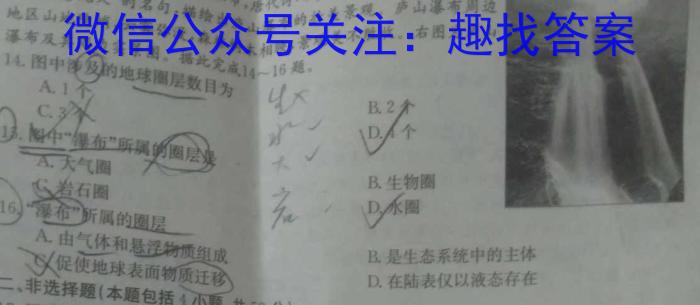 的名句,描绘
地区山
微信公众号关注：趣找答案
瀑布及
据此完成14~16题。
14. 图中涉及的地球圈层数目为
A. 1个
B. 2个
C. 3个
D. 4个
15. 图中“瀑布”所属的圈层是
A. 大气圈
B. 生物圈
C. 岩石圈
D. 水圈
16. “瀑布”所属的圈层
A. 由气体和悬浮物质组成
B. 是生态系统中的主体
C. 促使地球表面物质迁移
D. 在陆表仅以液态存在
二、非选择题(本题包括4小题,共
生
水
大
岩